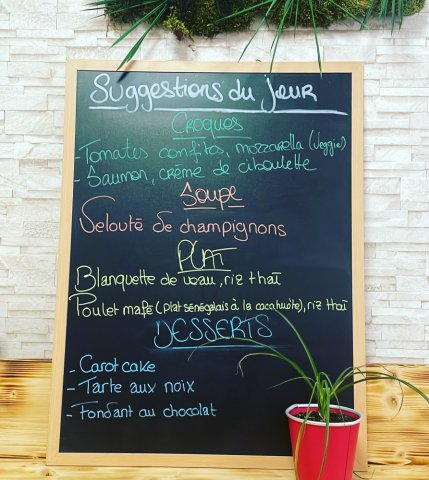 Suggestions du jour
Croques
- Tomates confites, mozzarella (Veggie)
- Saumon, crème de ciboulette
Soupe
Velouté de champignons
PLAT
Blanquette de veau, riz thaï
Poulet mafé (plat sénégalais à la cacahuète), riz thaï
DESSERTS
- Carot cake
- Tarte aux noix
- Fondant au chocolat